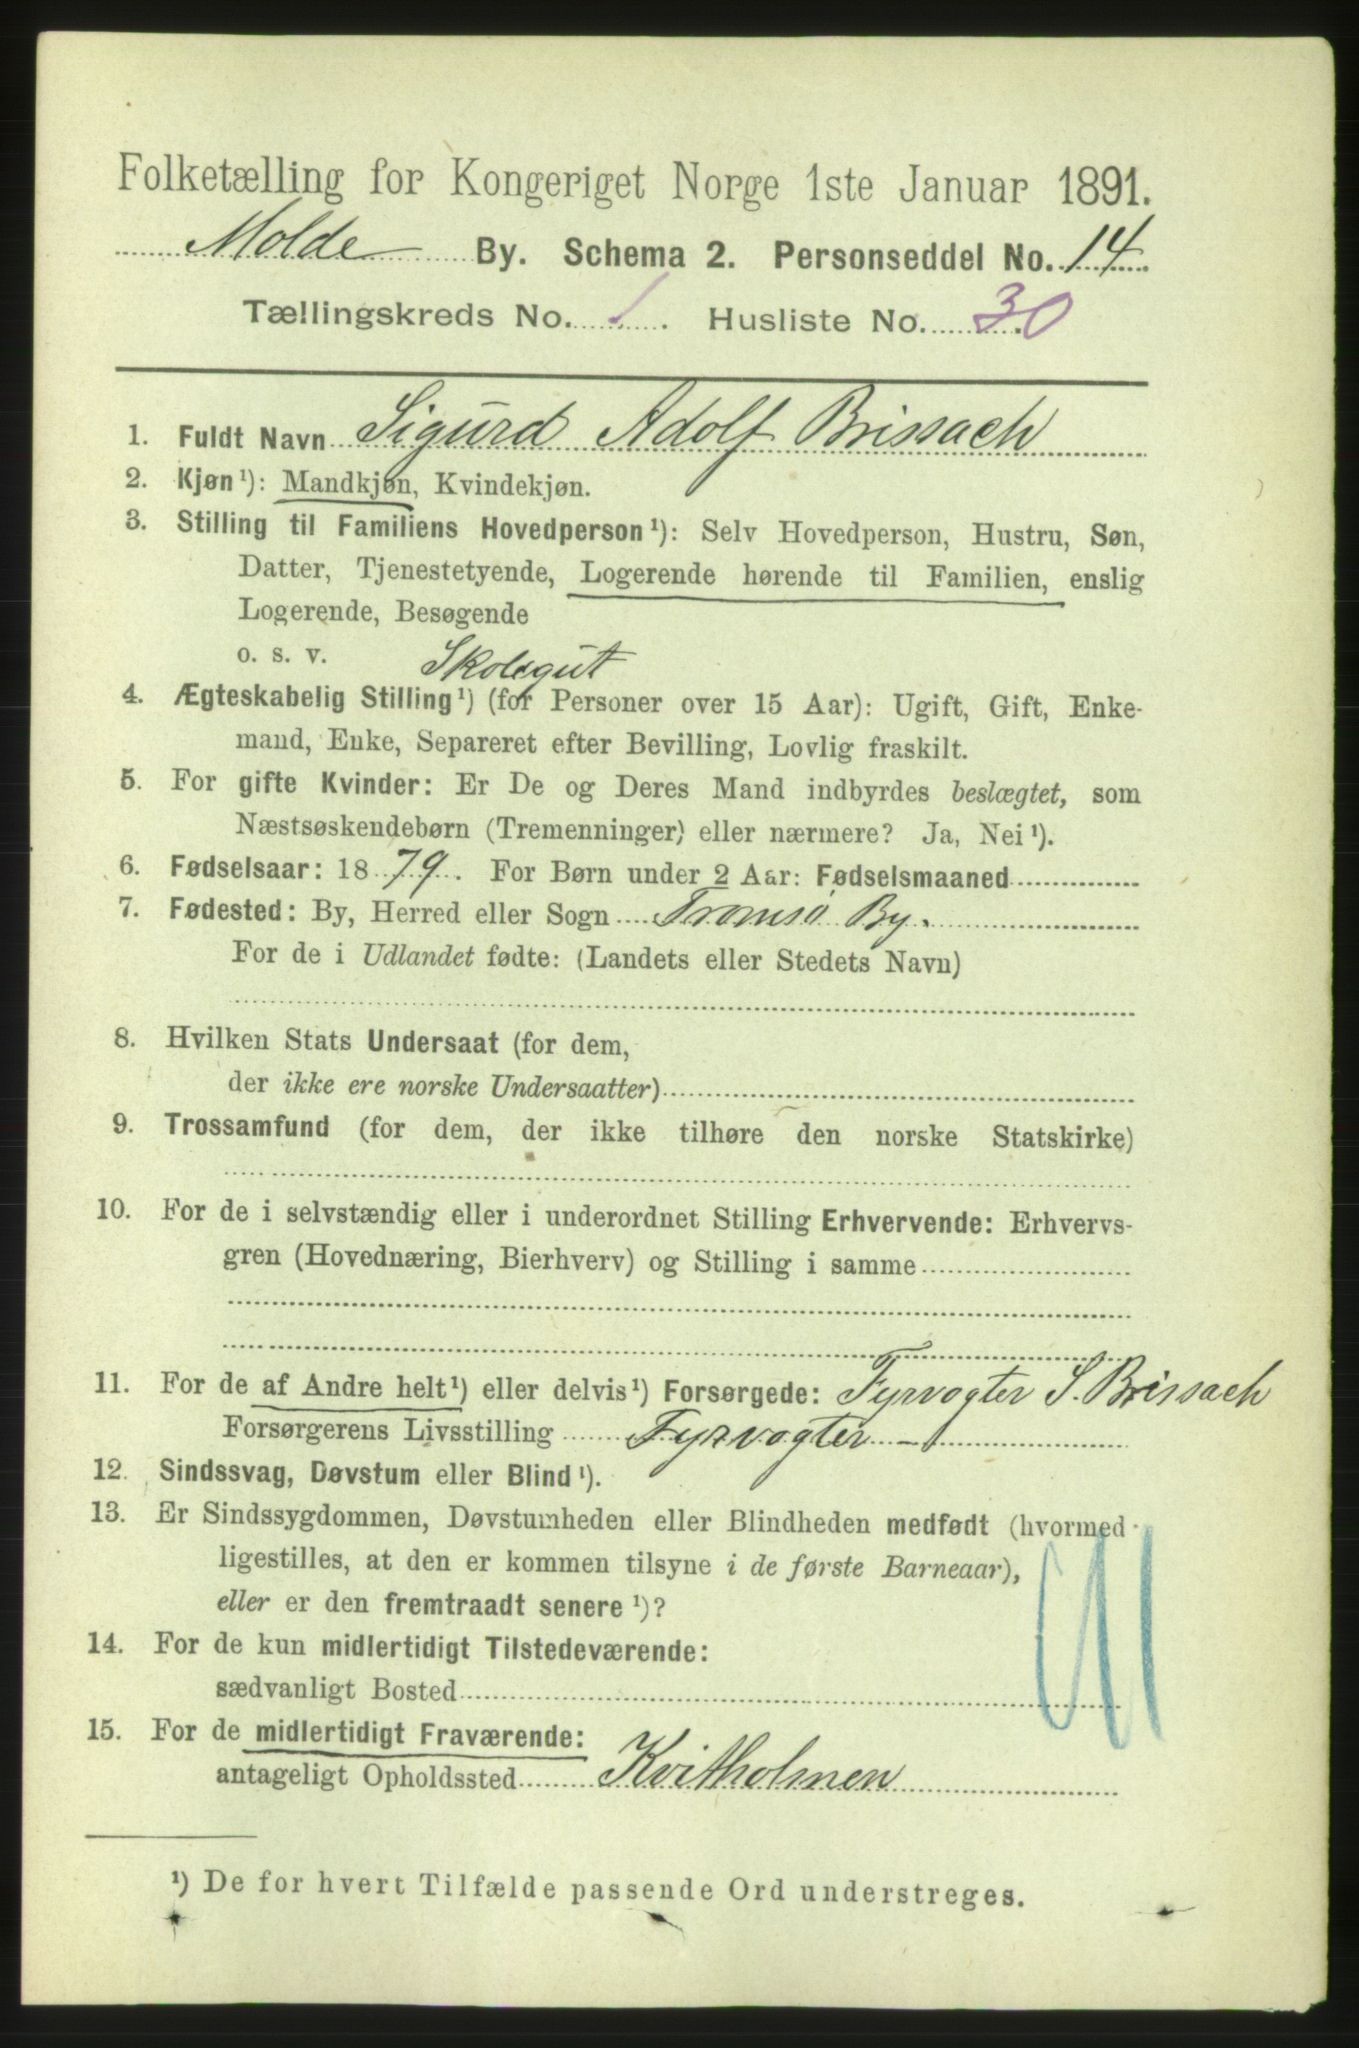 Folketælling for Kongeriget Norge 1ste Januar 1891.
Molde By. Schema 2. Personseddel No. 14
Tællingskreds No. 1. Husliste No. 30
1. Fuldt Navn Sigurd Adolf Brissach
2. Kjøn¹): Mandkjøn, Kvindekjøn.
3. Stilling til Familiens Hovedperson¹): Selv Hovedperson, Hustru, Søn,
Datter, Tjenestetyende, Logerende hørende til Familien, enslig
Logerende, Besøgende
o. s. v. Skolegut
4. Ægteskabelig Stilling¹) (for Personer over 15 Aar): Ugift, Gift, Enke-
mand, Enke, Separeret efter Bevilling, Lovlig fraskilt.
5. For gifte Kvinder: Er De og Deres Mand indbyrdes beslægtet, som
Næstsøskendebørn (Tremenninger) eller nærmere? Ja, Nei¹).
6. Fødselsaar: 1879. For Børn under 2 Aar: Fødselsmaaned
7. Fødested: By, Herred eller Sogn Tromsø By.
For de i Udlandet fødte: (Landets eller Stedets Navn)
8. Hvilken Stats Undersaat (for dem,
der ikke ere norske Undersaatter)
9. Trossamfund (for dem, der ikke tilhøre den norske Statskirke)
10. For de i selvstændig eller i underordnet Stilling Erhvervende: Erhvervs-
gren (Hovednæring, Bierhverv) og Stilling i samme
11. For de af Andre helt¹) eller delvis¹) Forsørgede: Fyrvogter S. Brissach
Forsørgerens Livsstilling Fyrvogter –
12. Sindssvag, Døvstum eller Blind¹).
13. Er Sindssygdommen, Døvstumheden eller Blindheden medfødt (hvormed
ligestilles, at den er kommen tilsyne i de første Barneaar),
eller er den fremtraadt senere¹)?
14. For de kun midlertidigt Tilstedeværende:
sædvanligt Bosted
15. For de midlertidigt Fraværende:
antageligt Opholdssted Kvitholmen
¹) De for hvert Tilfælde passende Ord understreges.